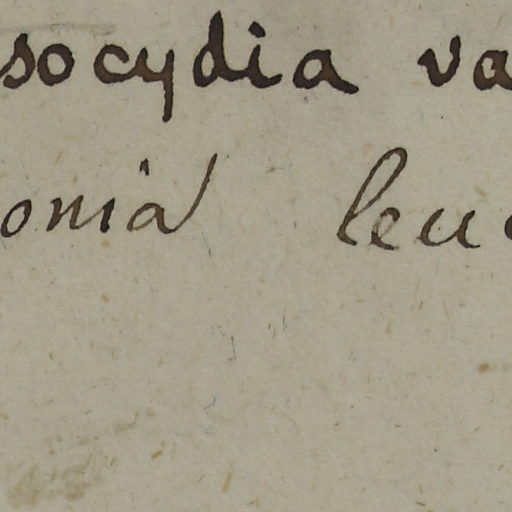 socydia va
onia leuc